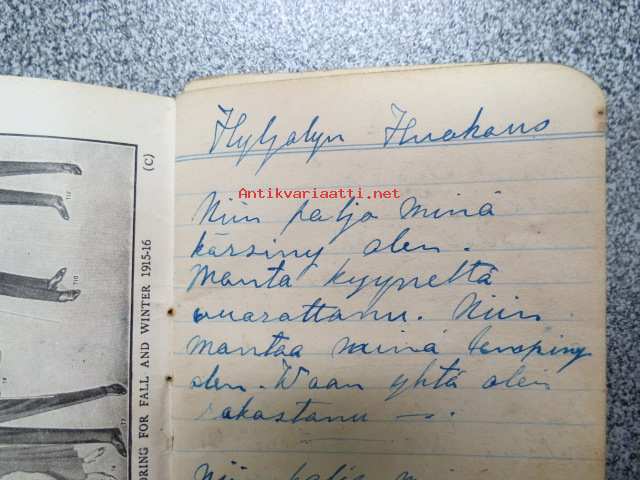 Hyljatyn Huokaus
Antikvariaatti.net
Niin paljo minä
kärsiny olen.
Monta kyyneltä
vuorattanu. Niin
montaa minä
olen. Waan yhtä olen
rakastanu —.
Niin paljo
(C)
ORING FOR FALL AND WINTER 1915-16
710